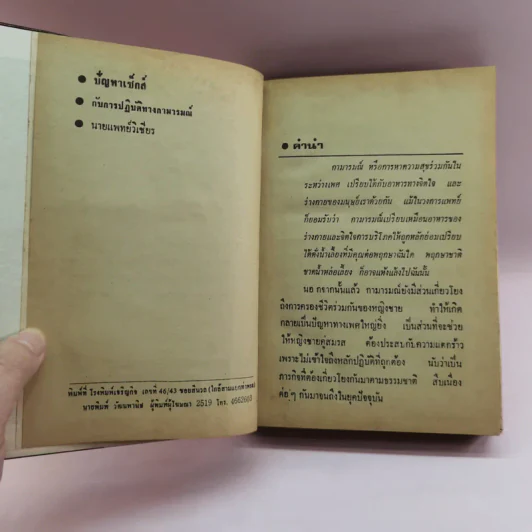 ● ปัญหาเซ็กส์
● กับการปฏิบัติทางกามารมณ์
● นายแพทย์วิเชียร
พิมพ์ที่ โรงพิมพ์เจริญกิจ เลขที่ 46/43
นายพิมพ์ วัฒนหานิส ผู้พิมพ์ผู้โฆษณา 2519 โทร.
● คำนำ
กามารมณ์ หรือการหาความสุขร่วมกันใน
ระหว่างเพศ เปรียบได้กับอาหารทางจิตใจ และ
ร่างกายของมนุษย์เราด้วยกัน แม้ในวงการแพทย์
ก็ยอมรับว่า กามารมณ์เปรียบเหมือนอาหารของ
ร่างกายและจิตใจการบริโภคให้ถูกหลักย่อมเปรียบ
ได้ดั่งน้ำเลี้ยงที่มีคุณต่อพฤกษาฉันใด พฤกษาชาติ
ขาดน้ำหล่อเลี้ยง ก็อาจแห้งแล้งไปฉันนั้น
นอ กจากนั้นแล้ว กามารมณ์ยังมีส่วนเกี่ยวโยง
ถึงการครองชีวิตร่วมกันของหญิงชาย ทำให้เกิด
กลายเป็นปัญหาทางเพศใหญ่ยิ่ง เป็นส่วนที่จะช่วย
ให้หญิงชายคู่สมรส ต้องประสบกับความแตกร้าว
เพราะไม่เข้าใจถึงหลักปฏิบัติที่ถูกต้อง นับว่าเป็น
ภารกิจที่ต้องเกี่ยวโยงกันมาตามธรรมชาติ สืบเนื่อง
ต่อๆ กันมาจนถึงในยุคปัจจุบัน